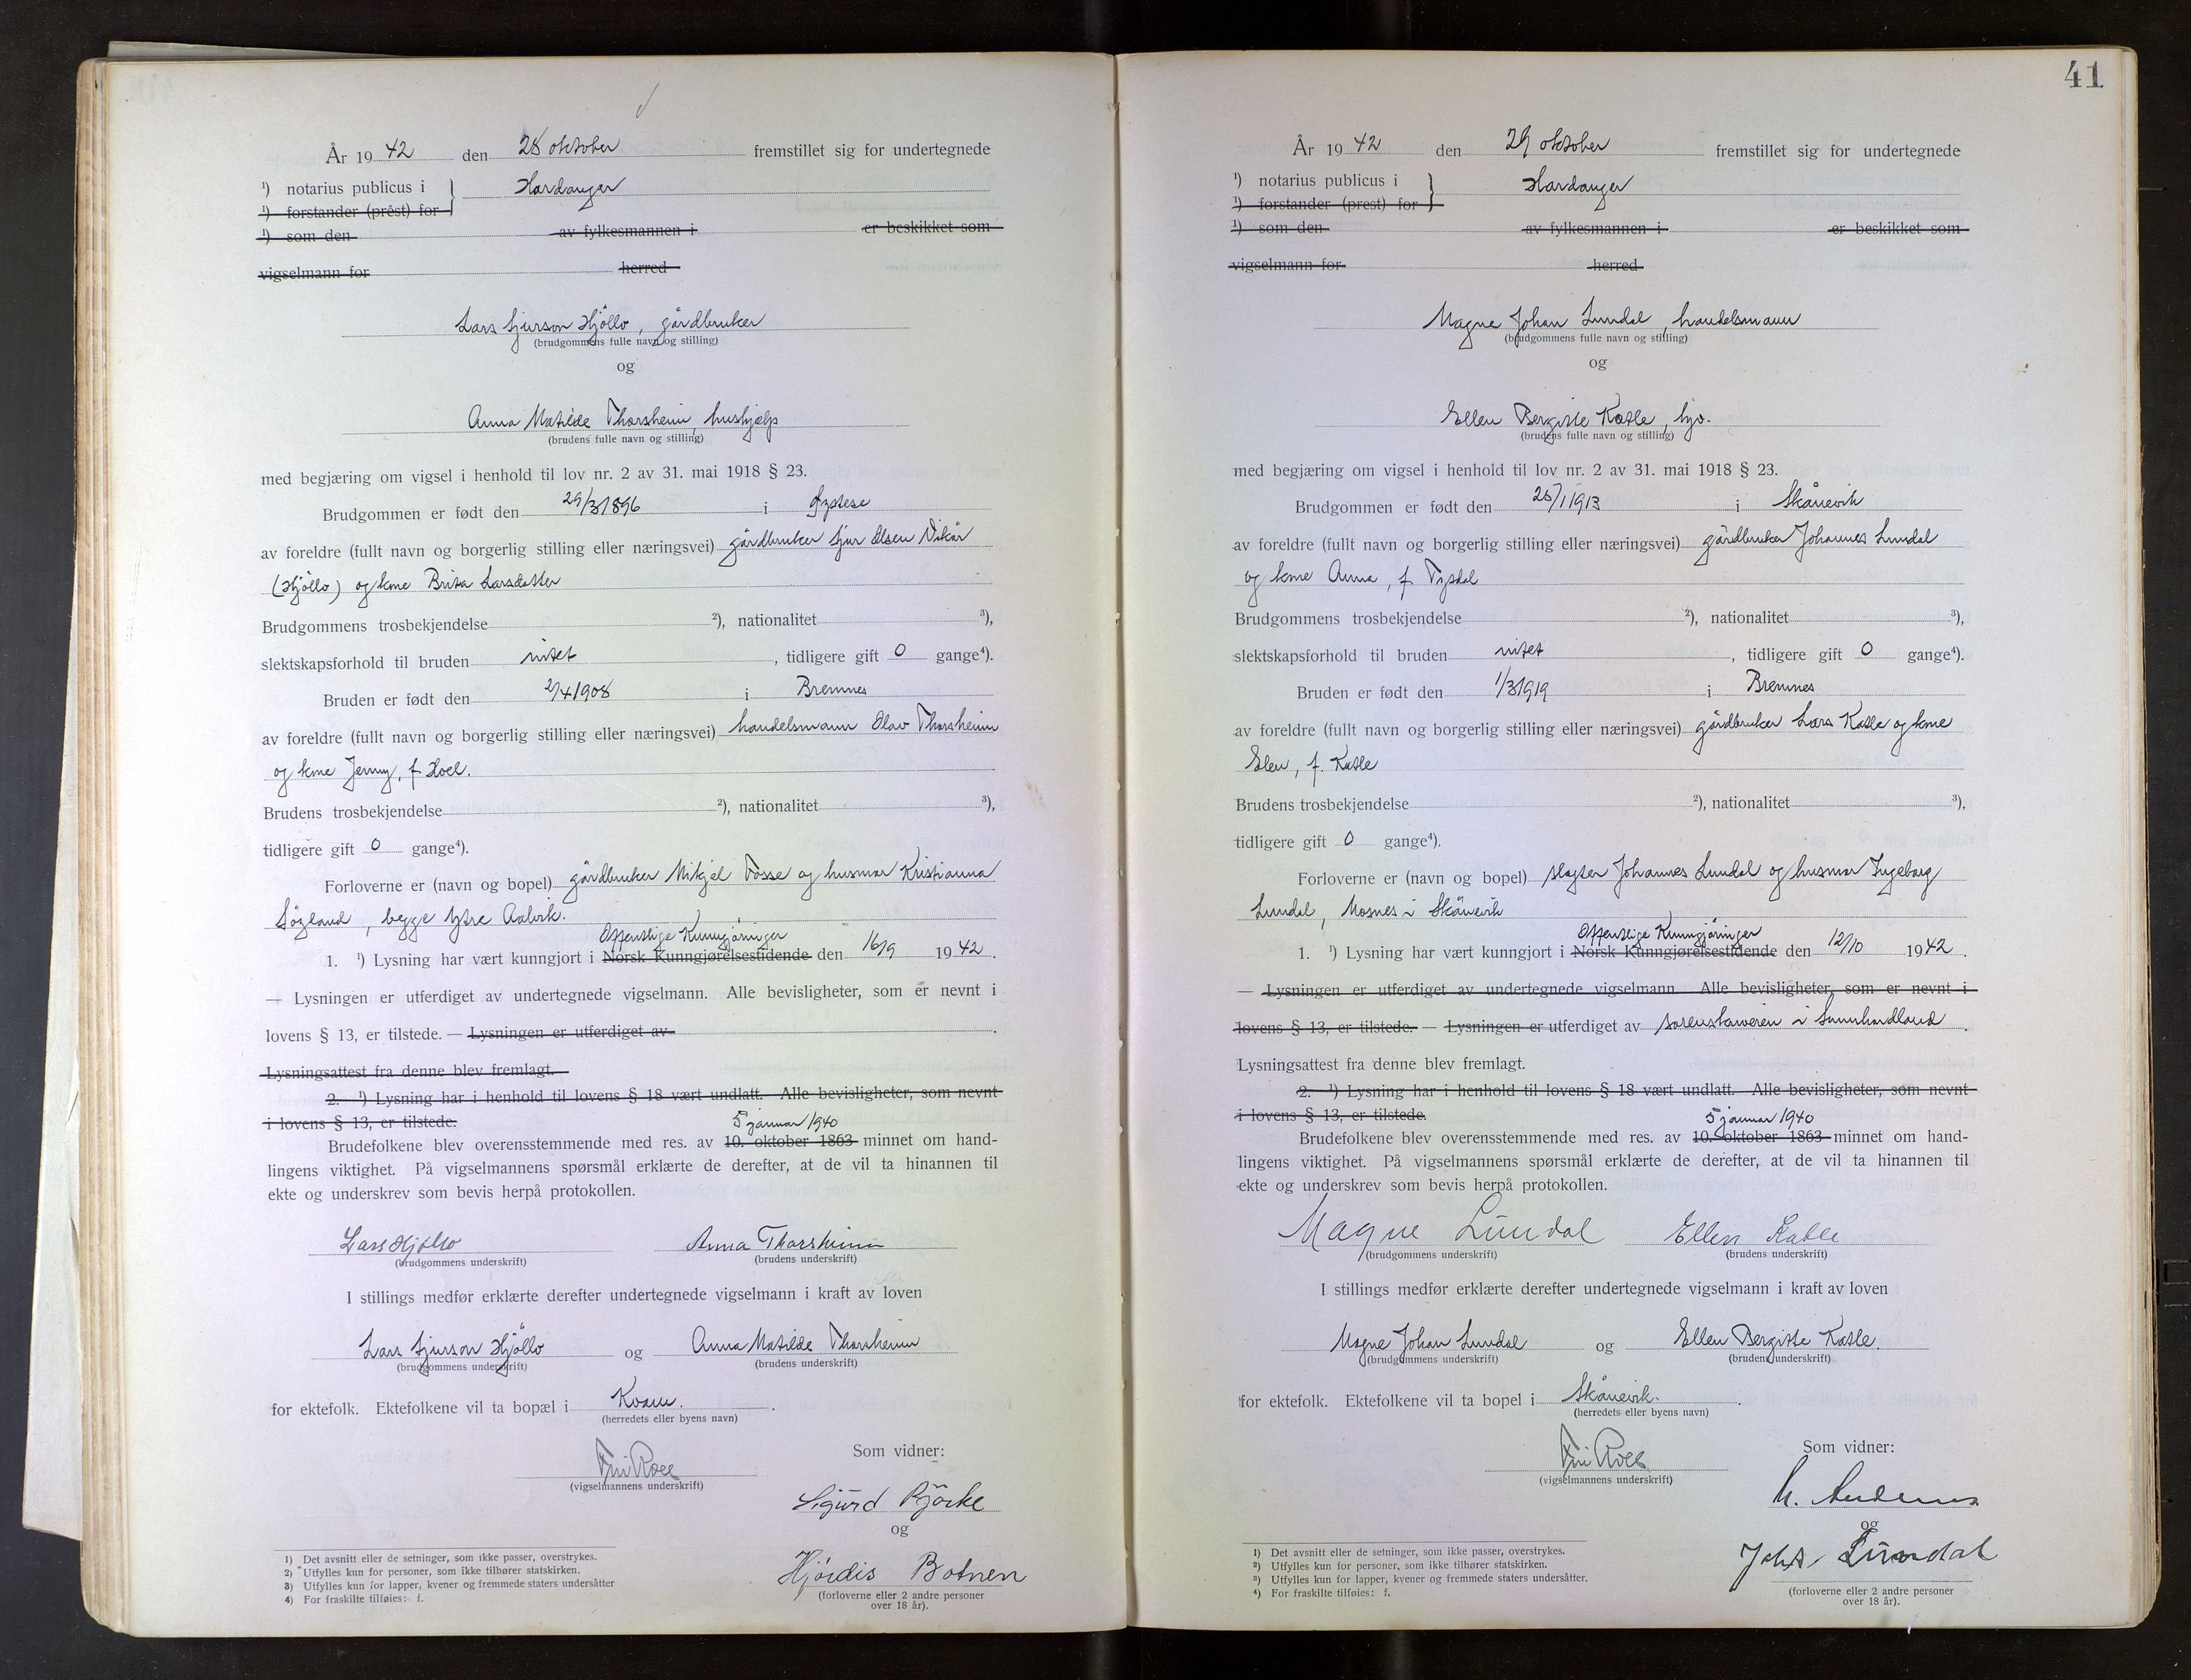 År 1942 den 28 oktober fremstillet sig for undertegnede
¹) notarius publicus i } Hardanger
¹) forstander (prest) for
¹) som den av fylkesmannen i er beskikket som
vigselmann for herred
Lars Sjurson Hjöllo, gårdbruker
(brudgommens fulle navn og stilling)
og
Anna Matilde Thorsheim, hushjelp
(brudens fulle navn og stilling)
med begjæring om vigsel i henhold til lov nr. 2 av 31. mai 1918 § 23.
Brudgommen er født den 29/3 1896 i Øystese
av foreldre (fullt navn og borgerlig stilling eller næringsvei) gårdbruker Sjur Olsen Vikör
(Hjöllo) og kone Brita Larsdatter
Brudgommens trosbekjendelse ²), nationalitet ³),
slektskapsforhold til bruden intet, tidligere gift 0 gange⁴).
Bruden er født den 2/4 1908 i Bremnes
av foreldre (fullt navn og borgerlig stilling eller næringsvei) handelsmann Olav Thorsheim
og kone Jenny, f. Hoel.
Brudens trosbekjendelse ²), nationalitet ³),
tidligere gift 0 gange⁴).
Forloverne er (navn og bopel) gårdbruker Mikjel Fosse og husmor Kristianna
Søgland, begge Ytre Aalvik.
Offentlige Kunngjøringer
1. ¹) Lysning har vært kunngjort i Norsk Kunngjørelsestidende den 16/9 1942.
— Lysningen er utferdiget av undertegnede vigselmann. Alle bevisligheter, som er nevnt i
lovens § 13, er tilstede. — Lysningen er utferdiget av
Lysningsattest fra denne blev fremlagt.
2. ¹) Lysning har i henhold til lovens § 18 vært undlatt. Alle bevisligheter, som nevnt
i lovens § 13, er tilstede.
5 januar 1940
Brudefolkene blev overensstemmende med res. av 10. oktober 1863 minnet om hand-
lingens viktighet. På vigselmannens spørsmål erklærte de derefter, at de vil ta hinannen til
ekte og underskrev som bevis herpå protokollen.
Lars Hjøllo Anna Thorsheim
(brudgommens underskrift) (brudens underskrift)
I stillings medfør erklærte derefter undertegnede vigselmann i kraft av loven
Lars Sjurson Hjöllo og Anna Matilde Thorsheim
(brudgommens underskrift) (brudens underskrift)
for ektefolk. Ektefolkene vil ta bopæl i Kvam.
(herredets eller byens navn)
Som vidner:
(vigselmannens underskrift)
Sigurd Bjørke
og
Hjördis Botnen
(forloverne eller 2 andre personer
over 18 år).
1) Det avsnitt eller de setninger, som ikke passer, overstrykes.
2) Utfylles kun for personer, som ikke tilhører statskirken.
3) Utfylles kun for lapper, kvener og fremmede staters undersåtter
4) For fraskilte tilføies: f.
41
År 1942 den 29 oktober fremstillet sig for undertegnede
¹) notarius publicus i } Hardanger
¹) forstander (prest) for
¹) som den av fylkesmannen i er beskikket som
vigselmann for herred
Magne Johan Lundal, handelsmann
(brudgommens fulle navn og stilling)
og
Ellen Bergitte Katle, hjv.
(brudens fulle navn og stilling)
med begjæring om vigsel i henhold til lov nr. 2 av 31. mai 1918 § 23.
Brudgommen er født den 25/1 1913 i Skånevik
av foreldre (fullt navn og borgerlig stilling eller næringsvei) gårdbruker Johannes Lundal
og kone Anna, f. Tysdal
Brudgommens trosbekjendelse ²), nationalitet ³),
slektskapsforhold til bruden intet, tidligere gift 0 gange⁴).
Bruden er født den 1/3 1919 i Bremnes
av foreldre (fullt navn og borgerlig stilling eller næringsvei) gårdbruker Lars Katle og kone
Elen, f. Katle
Brudens trosbekjendelse ²), nationalitet ³),
tidligere gift 0 gange⁴).
Forloverne er (navn og bopel) slagter Johannes Lundal og husmor Ingeborg
Lundal, Mosnes i Skånevik
Offentlige Kunngjøringer
1. ¹) Lysning har vært kunngjort i Norsk Kunngjørelsestidende den 12/10 1942.
— Lysningen er utferdiget av undertegnede vigselmann. Alle bevisligheter, som er nevnt i
lovens § 13, er tilstede. — Lysningen er utferdiget av sorenskriveren i Sunnhordland.
Lysningsattest fra denne blev fremlagt.
2. ¹) Lysning har i henhold til lovens § 18 vært undlatt. Alle bevisligheter, som nevnt
i lovens § 13, er tilstede.
5 januar 1940
Brudefolkene blev overensstemmende med res. av 10. oktober 1863 minnet om hand-
lingens viktighet. På vigselmannens spørsmål erklærte de derefter, at de vil ta hinannen til
ekte og underskrev som bevis herpå protokollen.
Magne Lundal Ellen Katle
(brudgommens underskrift) (brudens underskrift)
I stillings medfør erklærte derefter undertegnede vigselmann i kraft av loven
Magne Johan Lundal og Ellen Bergitte Katle.
(brudgommens underskrift) (brudens underskrift)
for ektefolk. Ektefolkene vil ta bopel i Skånevik.
(herredets eller byens navn)
Som vidner:
(vigselmannens underskrift)
og
Johs. Lundal
(forloverne eller 2 andre personer
over 18 år).
1) Det avsnitt eller de setninger, som ikke passer, overstrykes.
2) Utfylles kun for personer, som ikke tilhører statskirken.
3) Utfylles kun for lapper, kvener og fremmede staters undersåtter.
4) For fraskilte tilføies: f.